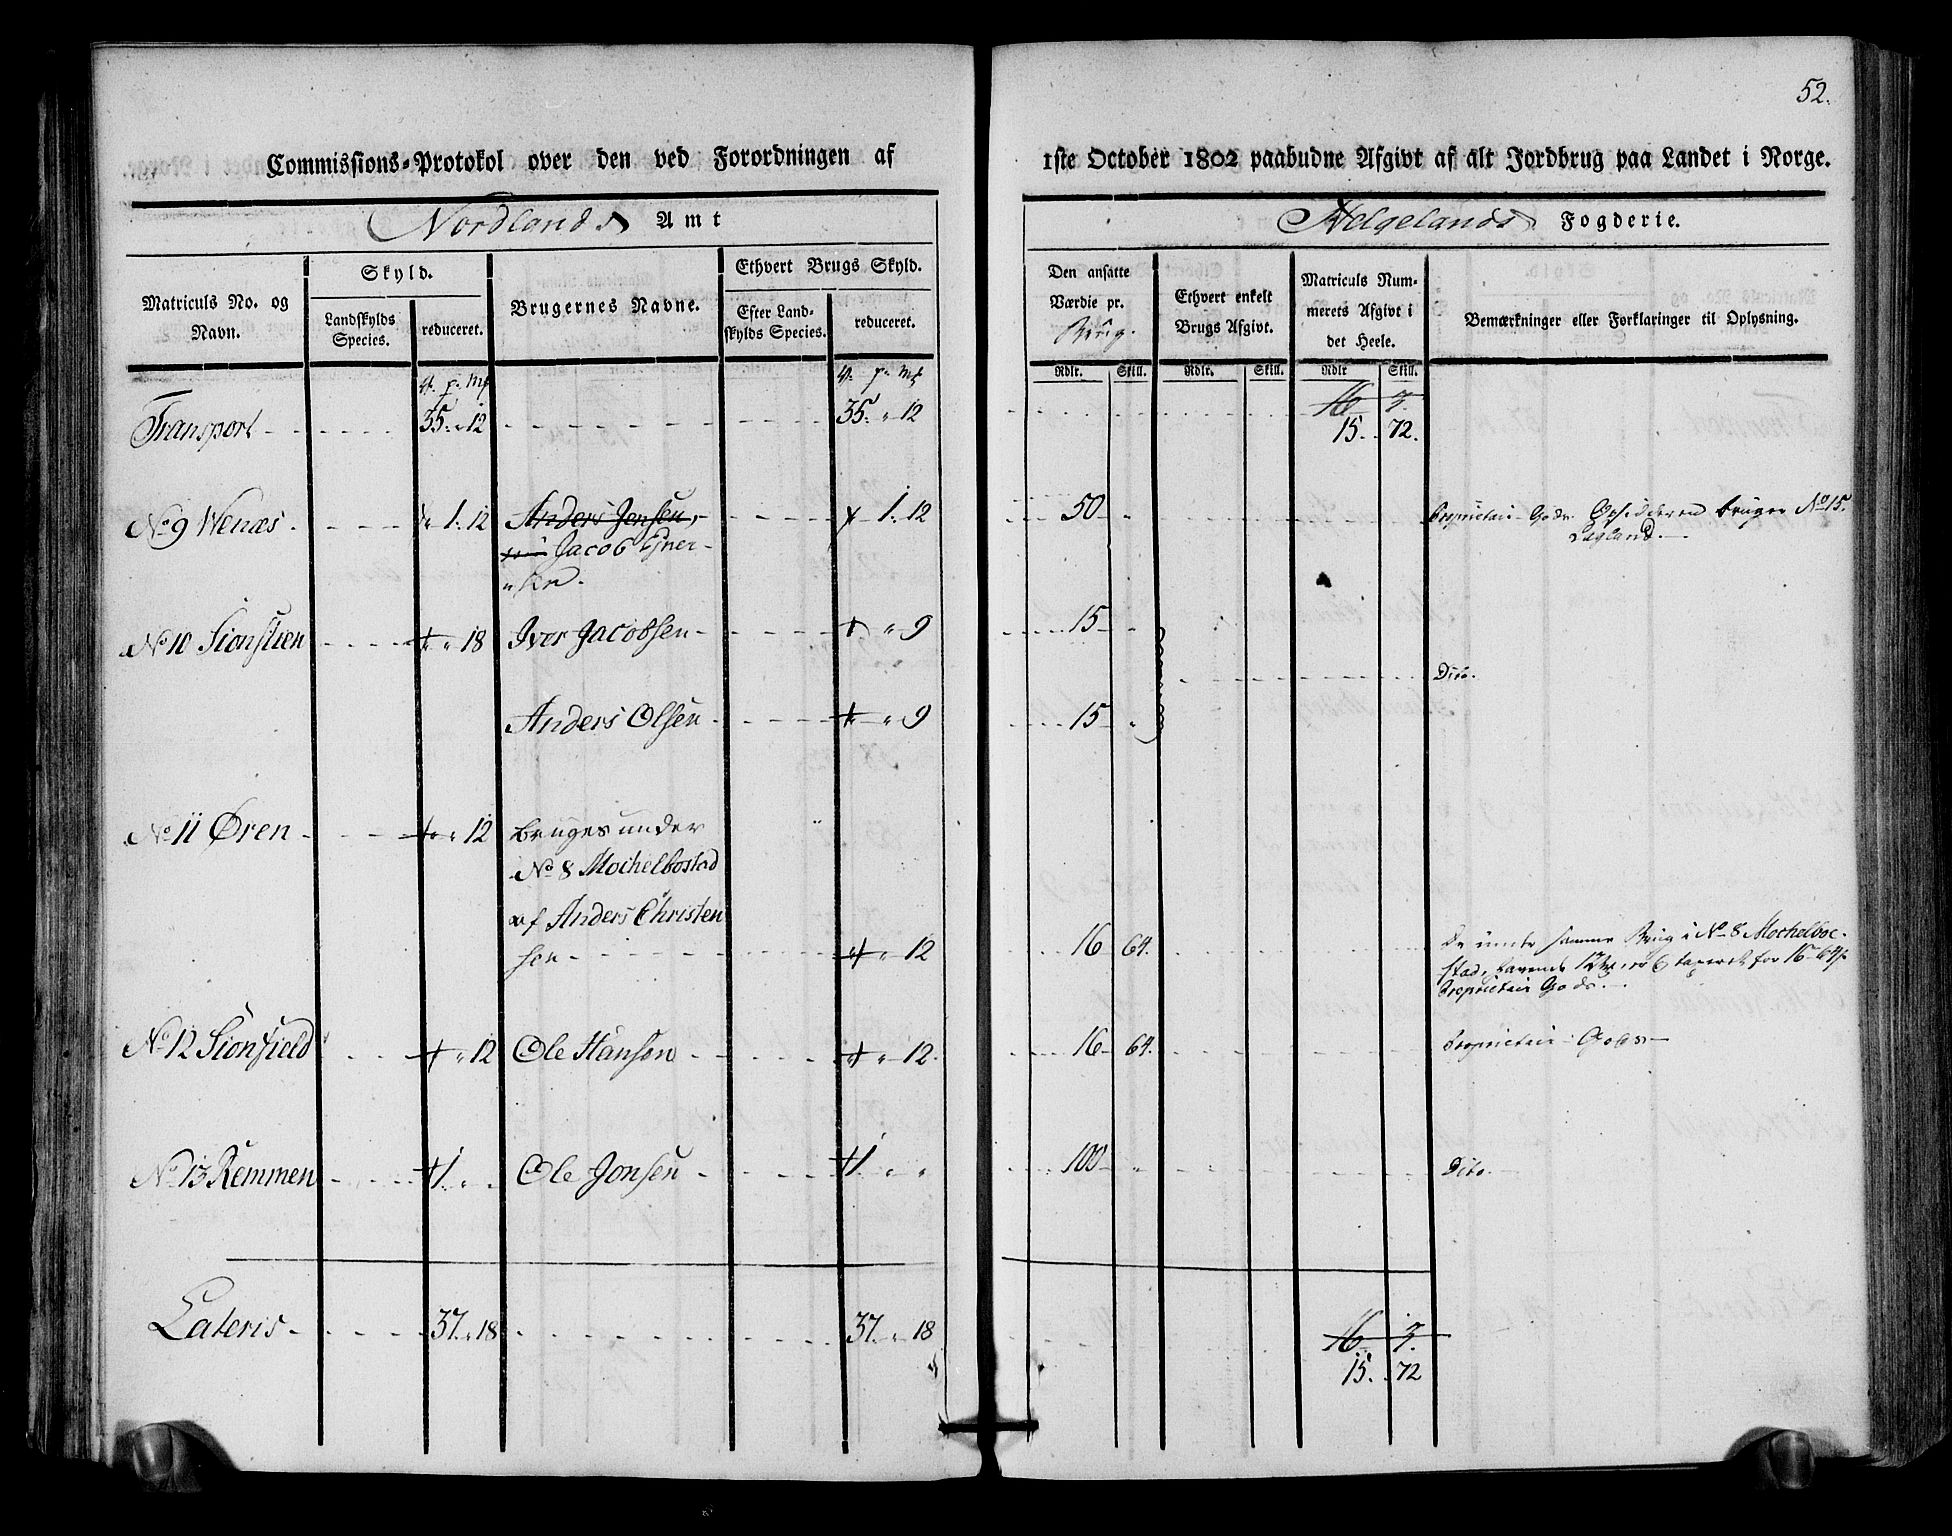 52.
Commissions-Protokol over den ved Forordningen af
1ste October 1802 paabudne Afgivt af alt Jordbrug paa Landet i Norge.
Nordlands Amt
Helgelands Fogderie.
Matriculs No. og Navn.
Skyld.
Landskylds Species.
reduceret.
Brugernes Navne.
Ethvert Brugs Skyld.
Efter Landskylds Species.
reduceret.
Den ansatte Værdie pr. Brug.
Ethvert enkelt Brugs Afgivt.
Matriculs Nummerets Afgivt i det Heele.
Bemærkninger eller Forklaringer til Oplysning.
Rdlr. Skill. Rdlr. Skill. Rdlr Skill.
Transport 35. „ 12 35. „ 12 16 3.
15. 72.
No 9 Wenæs. 1. 12 Anders Jensen, 1. 12 50 „ Proprietair Gods. Opsidderen bruger No 15.
Jacob Ejner-
No 10 Sionstien „ 18 Iver Jacobsen „ 9 15 „
Dito.
Anders Olsen „ 9 15 „
No 11 Øren „ 12 bruges under
No 8 Mochelbostad
af Anders Christen
sen „ 12 16 64. samme Brug i No 8 Mochelboe-
stad, taxeret for 16 64
Proprietair Gods.
No 12 Sionfield „ 12 Ole Hansen „ 12. 16 64. Proprietair Gods
No 13 Remmen 1. „ Ole Jonsen 1. „ 100 „ Dito.
Lateris 37. „ 18 37. „ 18 16 3.
15. 72